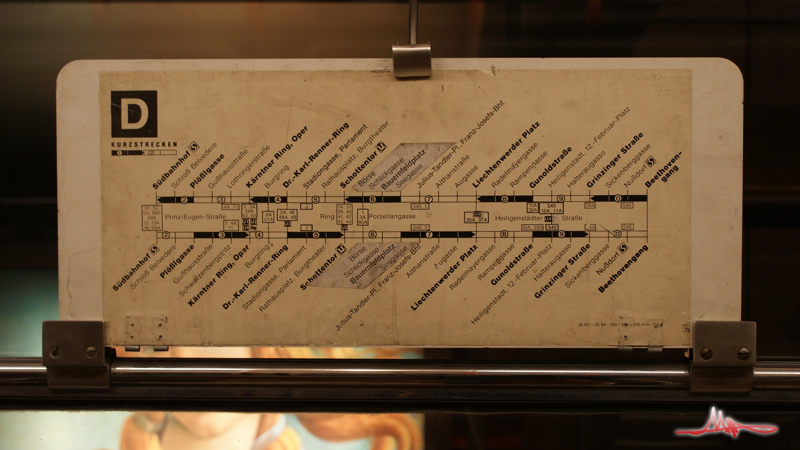 D
KURZSTRECKEN
Südbahnhof S
Schloß Belvedere
Plößlgasse
Gußhausstraße
Lothringerstraße
Kärntner Ring, Oper
Burgring
Dr.-Karl-Renner-Ring
Stadiongasse, Parlament
Rathausplatz, Burgtheater
Schottentor U
Börse
Schlickgasse
Bauernfeldplatz
Seegasse
Julius-Tandler-Pl. Franz-Josefs-Bhf.
Althanstraße
Augasse
Liechtenwerder Platz
Radelmayergasse
Rampengasse
Gunoldstraße
Heiligenstadt, 12.-Februar-Platz
Halteraugasse
Grinzinger Straße
Sickenberggasse
Nußdorf S
Beethoven-
gang
Prinz-Eugen-Straße
Ring
Porzellangasse
Heiligenstädter
Straße
Südbahnhof S
Schloß Belvedere
Plößlgasse
Gußhausstraße
Schwarzenbergplatz
Kärntner Ring, Oper
Burgring
Dr.-Karl-Renner-Ring
Stadiongasse, Parlament
Rathausplatz, Burgtheater
Schottentor U
Börse
Schlickgasse
Bauernfeldplatz
Seegasse
Julius-Tandler-Pl. Franz-Josefs-Bhf.
Althanstraße
Augasse
Liechtenwerder Platz
Radelmayergasse
Rampengasse
Gunoldstraße
Heiligenstadt, 12.-Februar-Platz
Halteraugasse
Grinzinger Straße
Sickenberggasse
Nußdorf S
Beethovengang